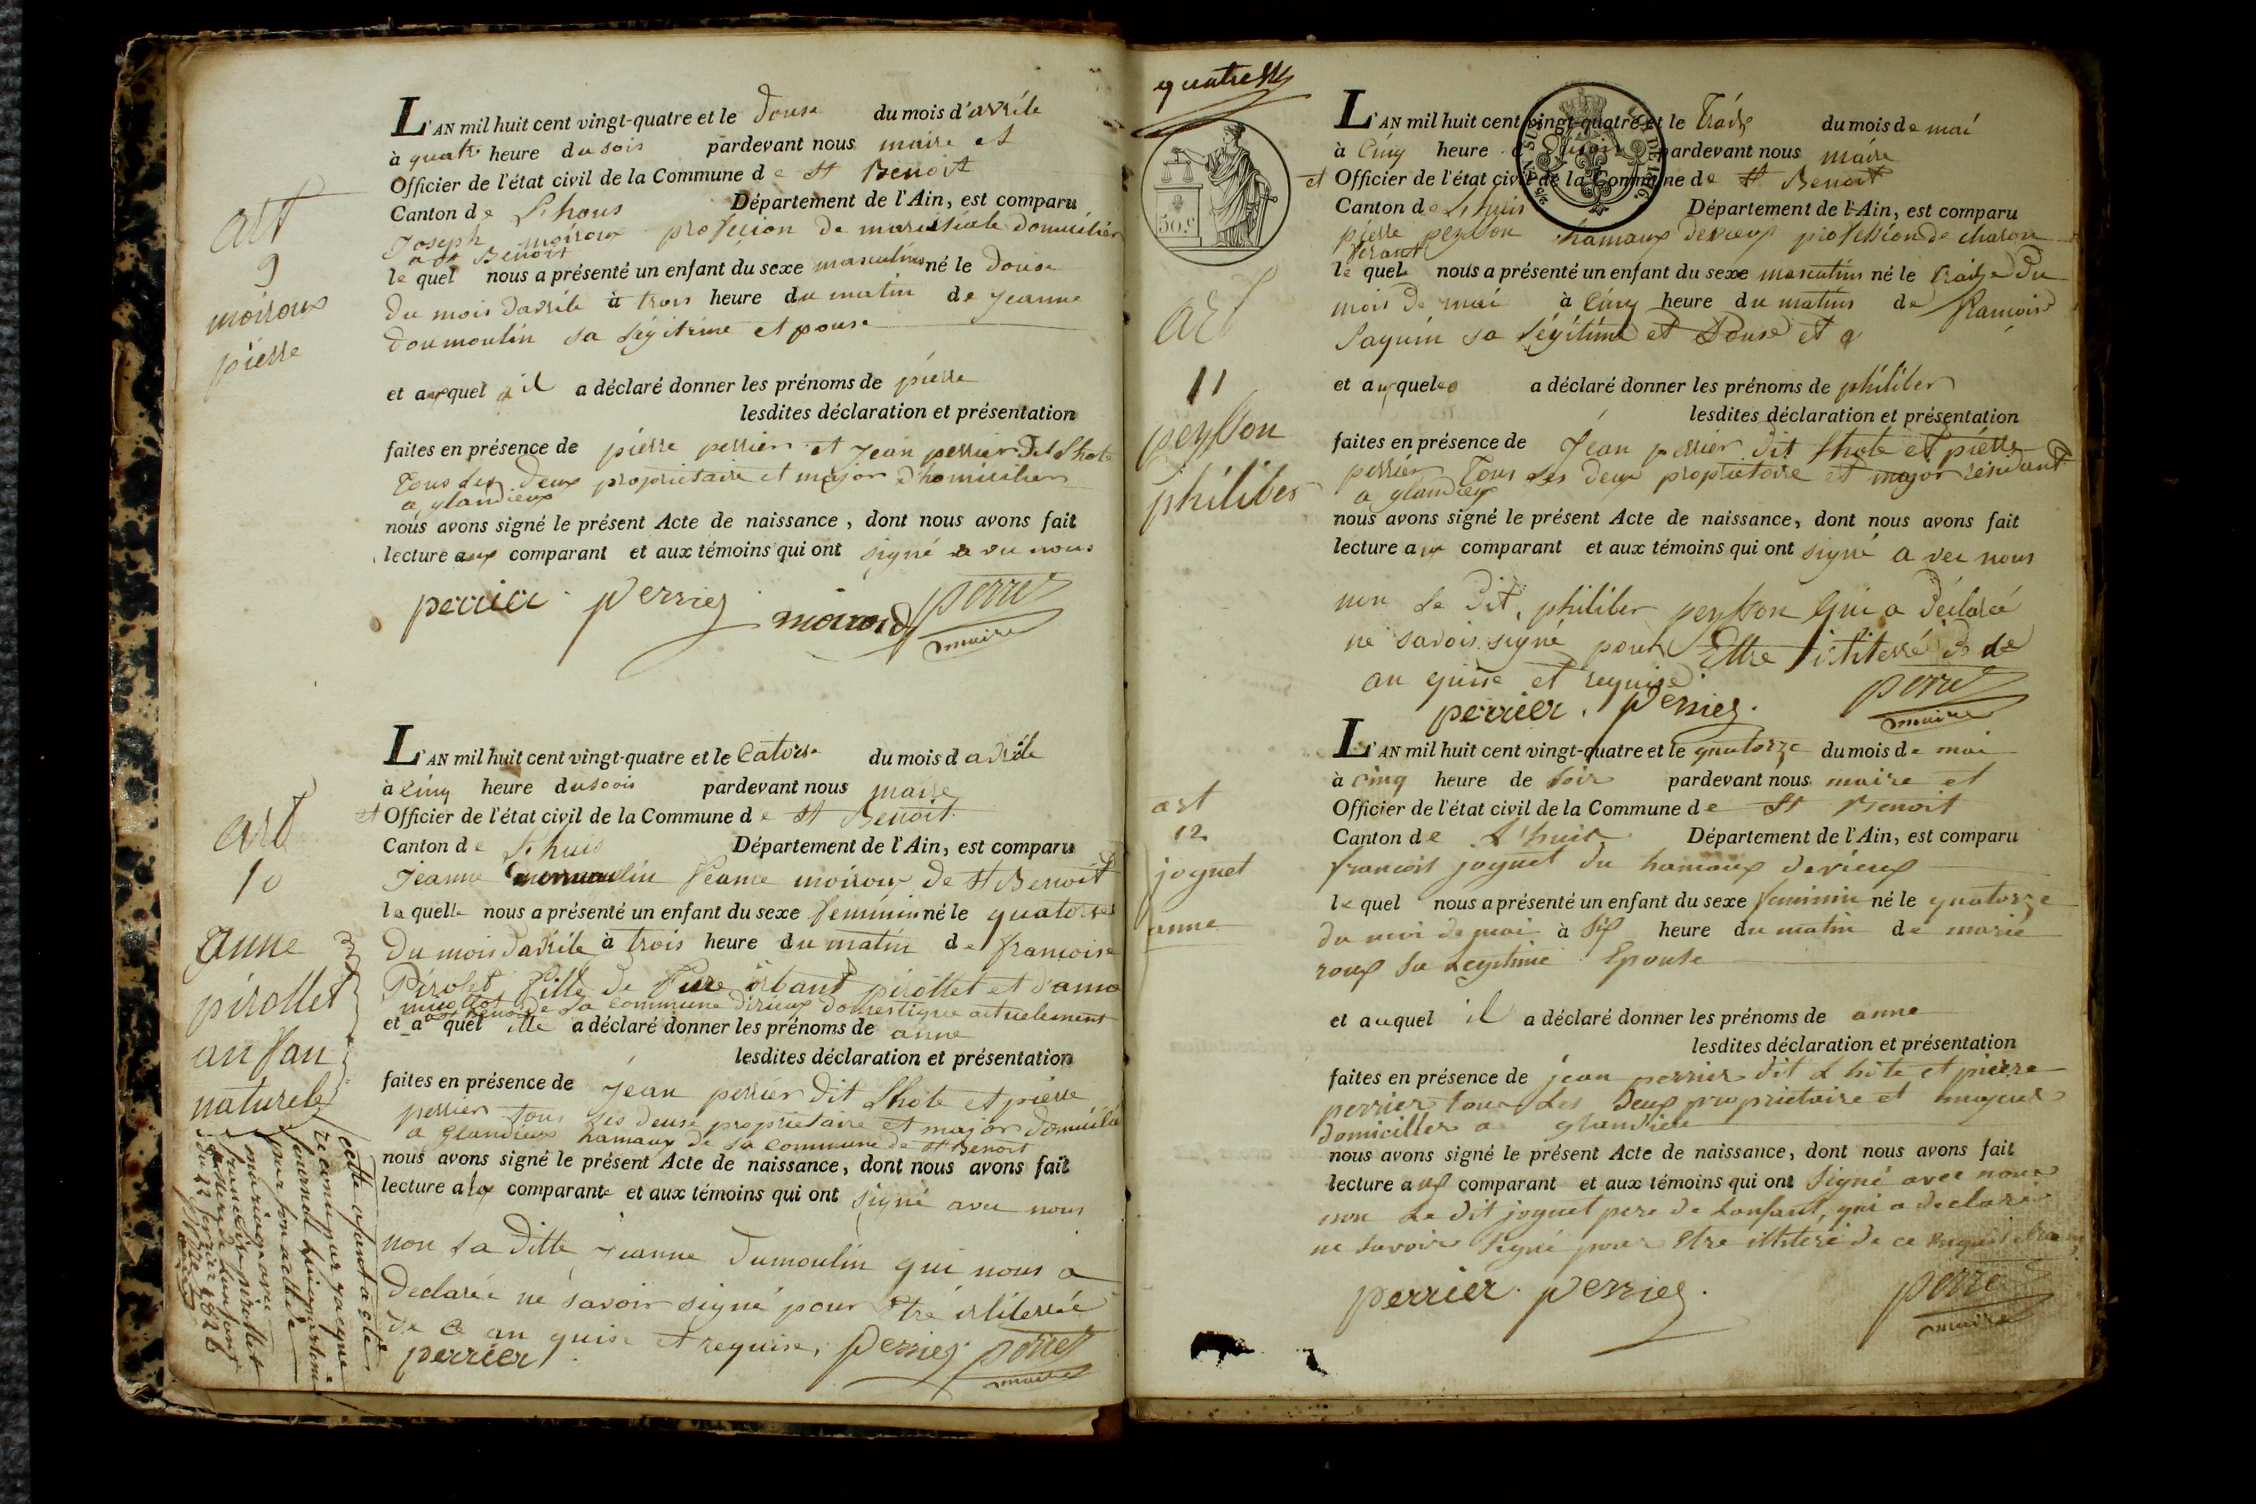 art
9
moiroux
pierre
L'AN mil huit cent vingt-quatre et le douse du mois d'avrile
à quatre heure du soir pardevant nous maire et
Officier de l'état civil de la Commune de St Benoit
Canton de Lhous Département de l'Ain, est comparu
Joseph moiroux profession de domicilier
a St Benoit
le quel nous a présenté un enfant du sexe masculin né le douse
du mois davrile à trois heure du matin de jeanne
doumoulin sa légitime et pouse
et auxquel il a déclaré donner les prénoms de piérre
lesdites déclaration et présentation
faites en présence de piérre perrier et jean perrier dit Lhote
tous les deux propriétaire et major dhomicilier
a glandieux
nous avons signé le présent Acte de naissance, dont nous avons fait
lecture aux comparant et aux témoins qui ont signé a vu nous
perrier perrier moirou perret
maire
art
10
anne
pirollet
anfan
naturele
cette enfant a été
reconnu par jacque
par son acte de
mariage avec
francoise pirollet
du 22 fevrier 1826
L'AN mil huit cent vingt-quatre et le Catorse du mois d avrile
à Cinq heure du soir pardevant nous maire
et Officier de l'état civil de la Commune de St Benoit
Canton de Lhuis Département de l'Ain, est comparu
Jeanne feame moiroux de St Benoit
la quelle nous a présenté un enfant du sexe féminin né le quatorse
Du mois davrile à trois heure du matin de francoise
Pirolet fille de orbant pirollet et danne
de la commune domestique actuelement
et a quel ille a déclaré donner les prénoms de anne
lesdites déclaration et présentation
faites en présence de Jean perrier dit Lhote et piérre
perrier tous les deuse propriétaire et major domicilié
a Glandieux hamaux de la commune de St Benoit
nous avons signé le présent Acte de naissance, dont nous avons fait
lecture alax comparante et aux témoins qui ont signé avu nous
non La ditte jeanne dumoulin qui nous a
declarée ne savoir signé pour Etré ilitérrée
de Ce an quise et requise, perrier perret
perrier maire
quatre
50 c
art
11
peysson
philiber
L'AN mil huit cent vingt-quatre et le Traize du mois de mai
à Cinq heure du soir pardevant nous maire
et Officier de l'état civil de la Commune de St Benoit
Canton de Lhuis Département de l'Ain, est comparu
piérre peysson hamaux devieux profession de charon
le quel nous a présenté un enfant du sexe masculin né le traize du
mois de mai à Cinq heure du matin de francois
Paquin sa légitime et Pouse et a
et auxqueles a déclaré donner les prénoms de philiber
lesdites déclaration et présentation
faites en présence de Jean perrier dit Lhote et piérre
perrier tous les deux propriétaire et major résidant
a glandieux
nous avons signé le présent Acte de naissance, dont nous avons fait
lecture aux comparant et aux témoins qui ont signé a vec nous
non Le dit philiber peysson qui a déclaré
ne savoir signé pour Ettre de
an quise et requise
perrier. perrier. perret
maire
art
12
joguet
anne
L'AN mil huit cent vingt-quatre et le quatorze du mois de mai
à cinq heure de soir pardevant nous maire et
Officier de l'état civil de la Commune de St Benoit
Canton de L'huis Département de l'Ain, est comparu
francois joguet du hamaux devieux
le quel nous a présenté un enfant du sexe feminin né le quatorze
du moi de mai à six heure du matin de marie
roux sa legitime Epouse
et auquel il a déclaré donner les prénoms de anne
lesdites déclaration et présentation
faites en présence de jean perrier dit L hôte et piérre
perrier tous les deux propriétaire et majeur
domicillier a glandieu
nous avons signé le présent Acte de naissance, dont nous avons fait
lecture aux comparant et aux témoins qui ont signé avec nous
non Le dit joguet pere de Lenfant, qui a declaré
ne savoir signé pour Etre illitéré de ce requis
perrier. perrier. perret
maire